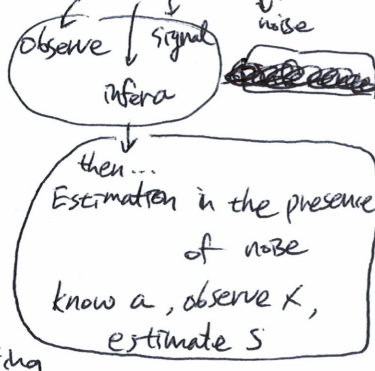 noise
observe signal
infer a
then...
Estimation in the presence
of noise
know a, observe x,
estimate s